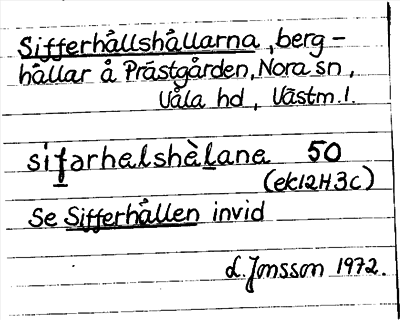 Sifferhållshållarna, berg-
hällar å Prästgården, Nora sn,
Våla hd, Västm.l.
sifarhalshèlana 50
(ek12H3c)
Se Sifferhållen invid
L. Jonsson 1972.